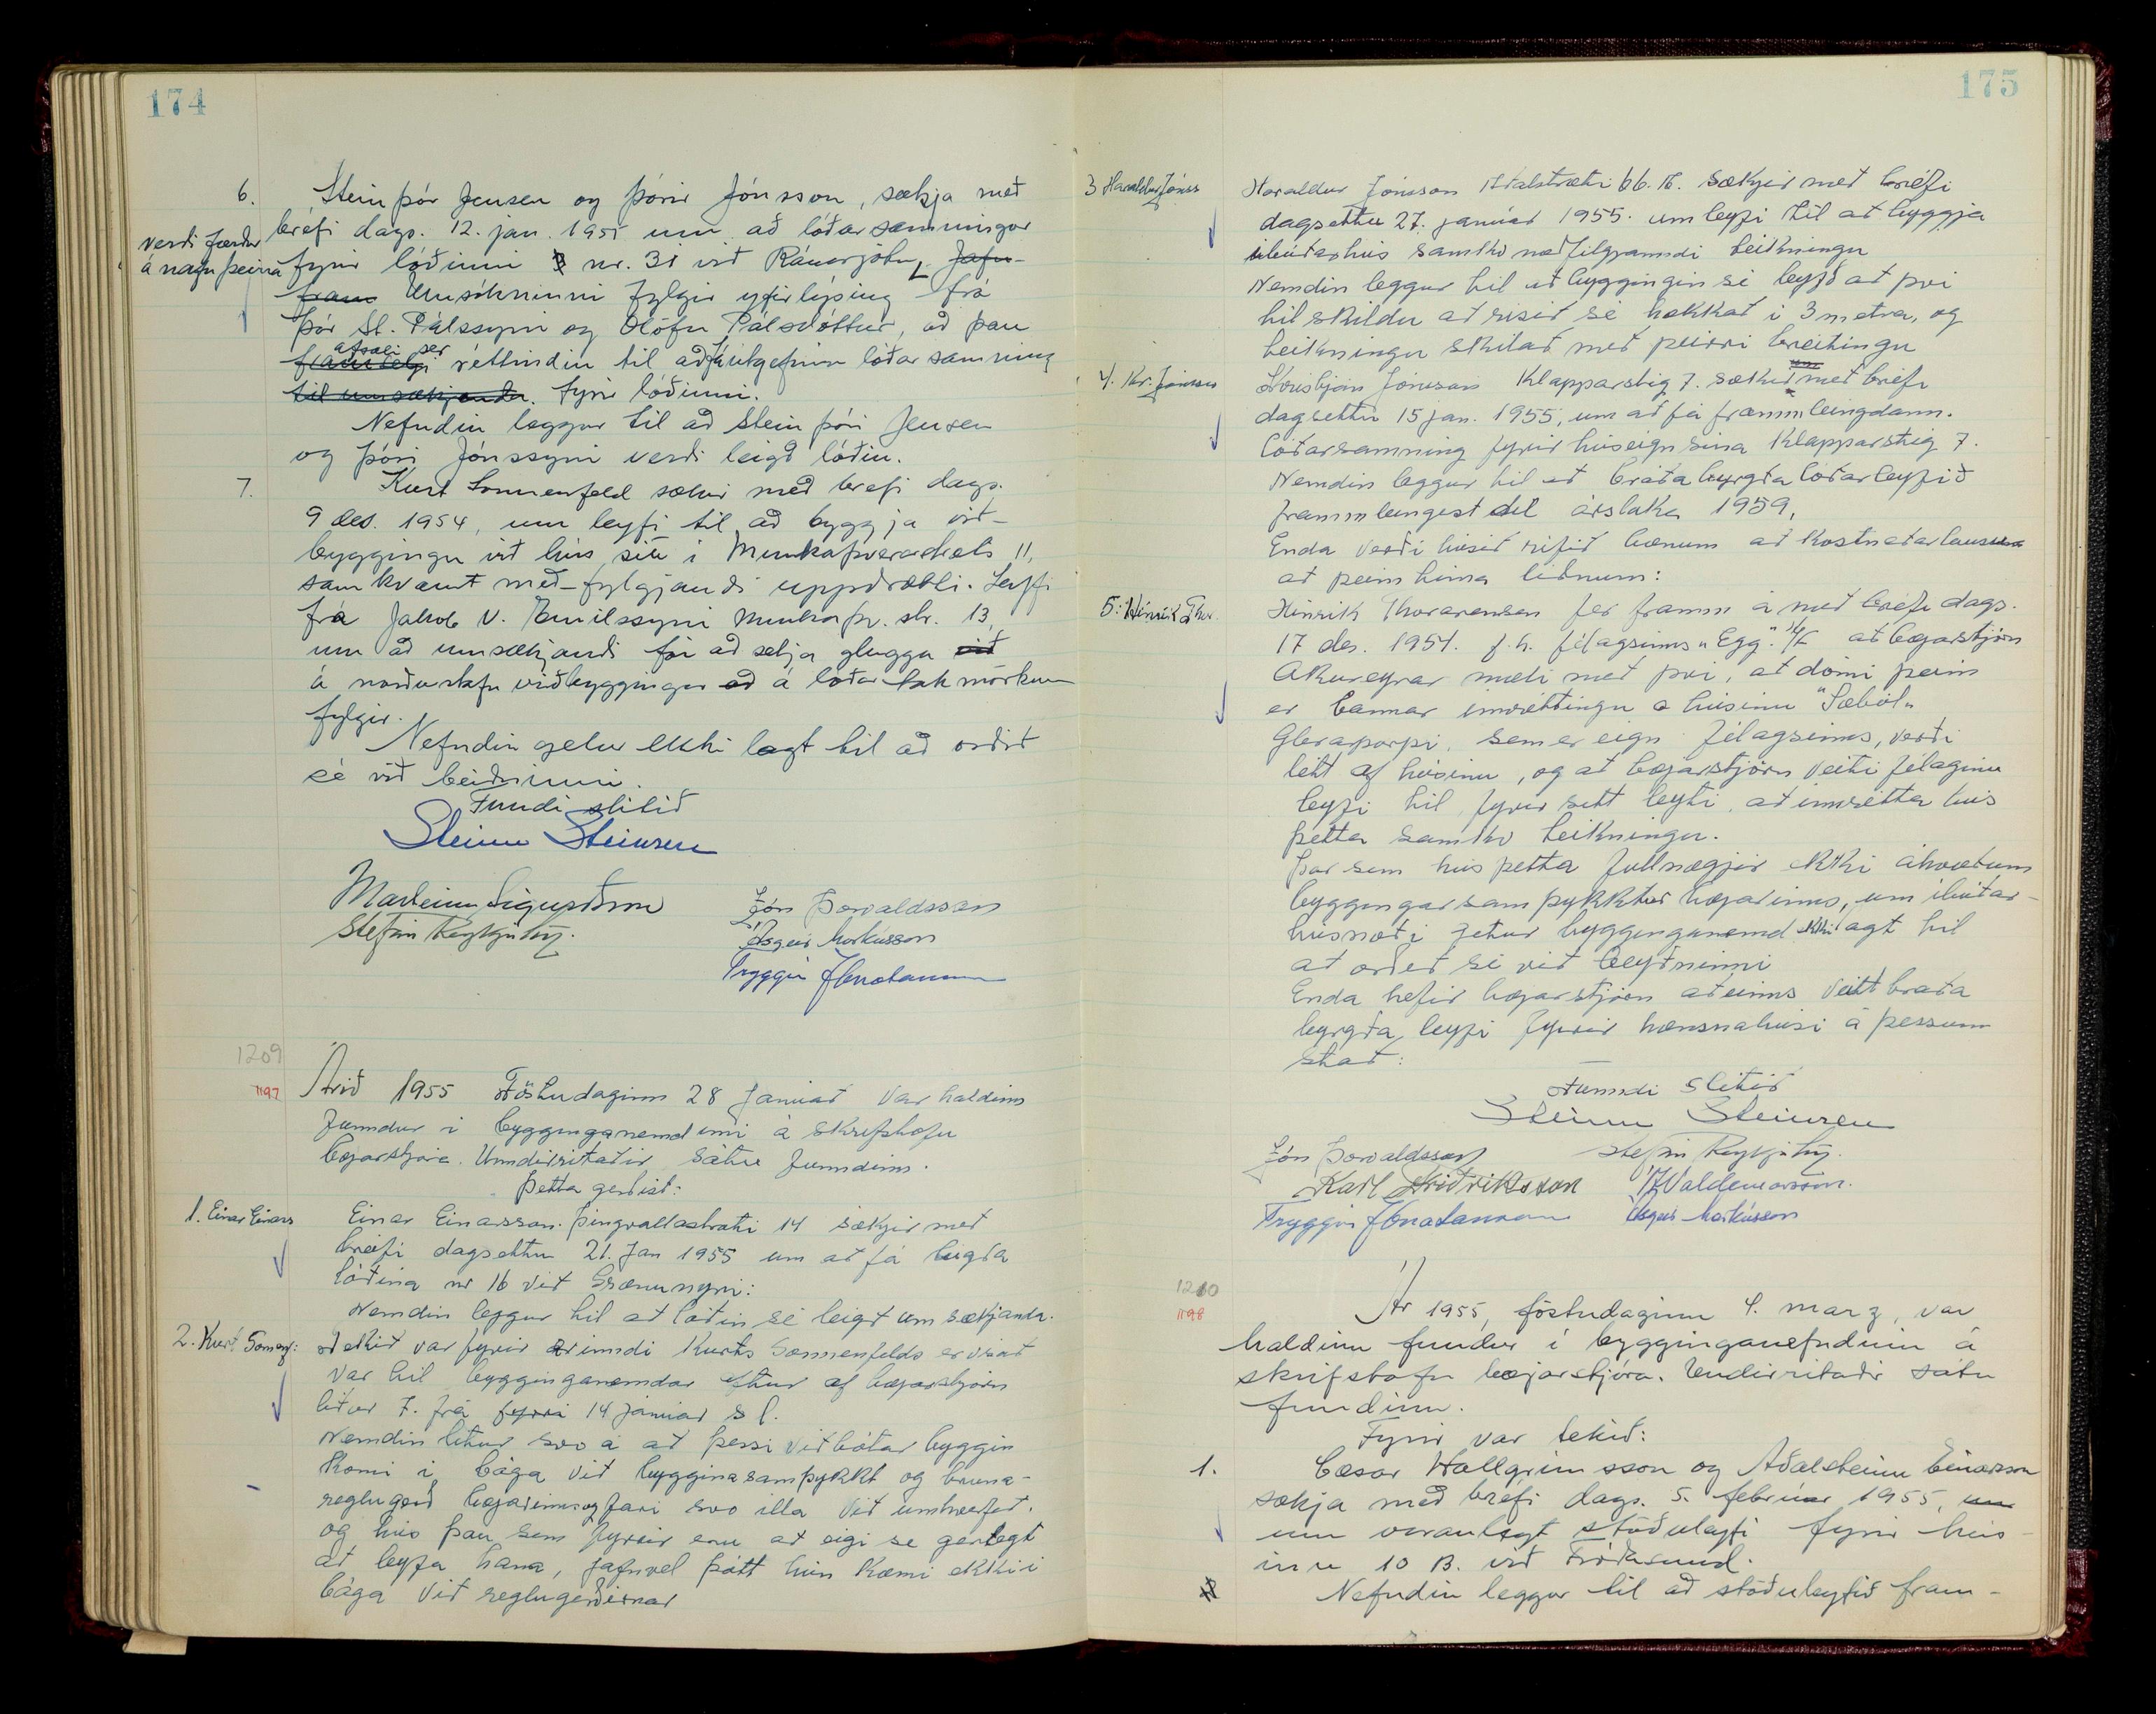 174
6. Steinþór Jensen og Þórir Jónsson, sækja með
bréfi dags. 12. jan. 1955 um að lóðarsamningur
verði færður
á nafn þeirra
fyrir lóðinni nr. 31 við Ránargötu, Jafn-
fram Umsókninni fylgir yfirlýsing frá
Þór St. Pálssyni og Ólöfu Pálsdóttur, að þau
afsali sér
framselji réttindin til að fá útgefinn lóðarsamning
til umsækjenda. fyrir lóðinni.
Nefndin leggur til að Steinþóri Jensen
og Þóri Jónssyni verði leigð lóðin.
7. Kurt Sonnenfeld sækir með bréfi dags.
9 des. 1954, um leyfi til að byggja við-
byggingu við hús sitt í Munkaþverárstræti 11,
samkvæmt með-fylgjandi uppdrætti. Leyfi
frá Jakob V. Emilssyni Munkaþv. str. 13,
um að umsækjandi fái að setja glugga við
á norðurstafn viðbyggingar að á lóðar takmörkum
fylgir.
Nefndin getur ekki lagt til að orðið
sé við beiðninni.
Fundi slitið
Steinn Steinsen
Marteinn Sigurðsson
Jón Þorvaldsson
Stefán Reykjalín.
Ásgeir Markússon
Tryggvi Jónatansson
1209
1197
Árið 1955 Föstudaginn 28 Januar var haldinn
funndur í bygginganemdinni á skrifstofu
bæjarstjóra. Unndirritaðir sátu funndinn.
Þetta gerðist:
1. Einar Einars
Einar Einarsson. Þingvallastræti 14 sækjir með
bréfi dagsettu 21. Jan 1955 um at fá bygða
lóðina nr 16 við Grænumýri:
Nemdin leggur til at lóðin sé leigð umsækjanda.
2. Kurt Sonenf:
Tekið var fyrir erinndi Kurts Sonnenfelds er vísað
var til bygginganemdar aftur af bæjarstjórn
liður 7. frá fyrri 14 januar s l.
Nemdin lítur svo á at þessi viðbótar byggin
komi í bága við byggingasamþykkt og bruna-
reglugerð bæjarinns og fari svo illa við umhverfið.
og hús þau sem fyrir eru at eigi se gerlegt
at leyfa hana, jafnvel þótt hún kæmi ekki í
bága við reglugerðirnar
175
3 Haraldur Jónss
Haraldur Jónsson Hafstræti 66. Ak. sækjir með bréfi
dagsettu 27. januar 1955. um leyfi til at byggja
íbúðarhús samkv meðfilgjanndi teikningu
Nemdin leggur til at byggingin sé leyfð at því
tilskildu at risið sé hækkað í 3 metra, og
teikningu skilað með þeirri breitingu
4. Kr. Jónsson
Kristján Jónsson Klapparstig 7. sækir með bréfi
dagsettu 15 jan. 1955, um at fá frammleingdann.
lóðarsamning fyrir húseign sína Klapparstig 7.
Nemdin leggur til at bráðabyrgða lóðarleyfið
frammleingest til ársloka 1959,
Enda verði húsið rifið bænum at kostnaðarlausu
at þeim tíma liðnum:
5: Hinrik Thor.
Hinrik Thorarensen fer framm á með bréfi dags.
17 des. 1954. f.h. félagsinns „Egg." h/f at bæjarstjórn
Akureyrar mæli með því, at dómi þeim
er bannar innréttingu á húsinu "Sæból„
Glerárþorpi, sem er eign félagsinns, verði
létt af húsinu, og at bæjarstjórn veiti félaginu
leyfi til fyrir sitt leyti, at innrétta hús
þetta samkv teikningu.
Þar sem hús þetta fullnægjir ekki ákvæðum
byggingarsamþykktar bæjarinns, um íbúðar-
húsnæði getur bygginganemd ekki lagt til
at orðið sé við beiðninni
Enda hefir bæjarstjórn aðeinns veitt braða
byrgða leyfi fyrir hænsnahúsi á þessum
stað:
Funndi slitið
Steinn Steinsen
Jón Þorvaldsson
Stefán Reykjalín.
Karl Friðriksson
Valdemarsson.
Tryggvi Jónatansson
Ásgeir Markússon
1210
1198
Ár 1955, föstudaginn 4. marz, var
haldinn fundur í bygginganefndinni á
skrifstofu bæjarstjóra. Undirritaðir sátu
fundinn.
Fyrir var tekið:
1. Cæsar Hallgrímsson og Aðalsteinn Einarsson
sækja með bréfi dags. 5. februar 1955, um
um varanlegt stöðuleyfi fyrir hús-
inu 10 B. við Fróðasund.
Nefndin leggur til að stöðuleyfið fram-